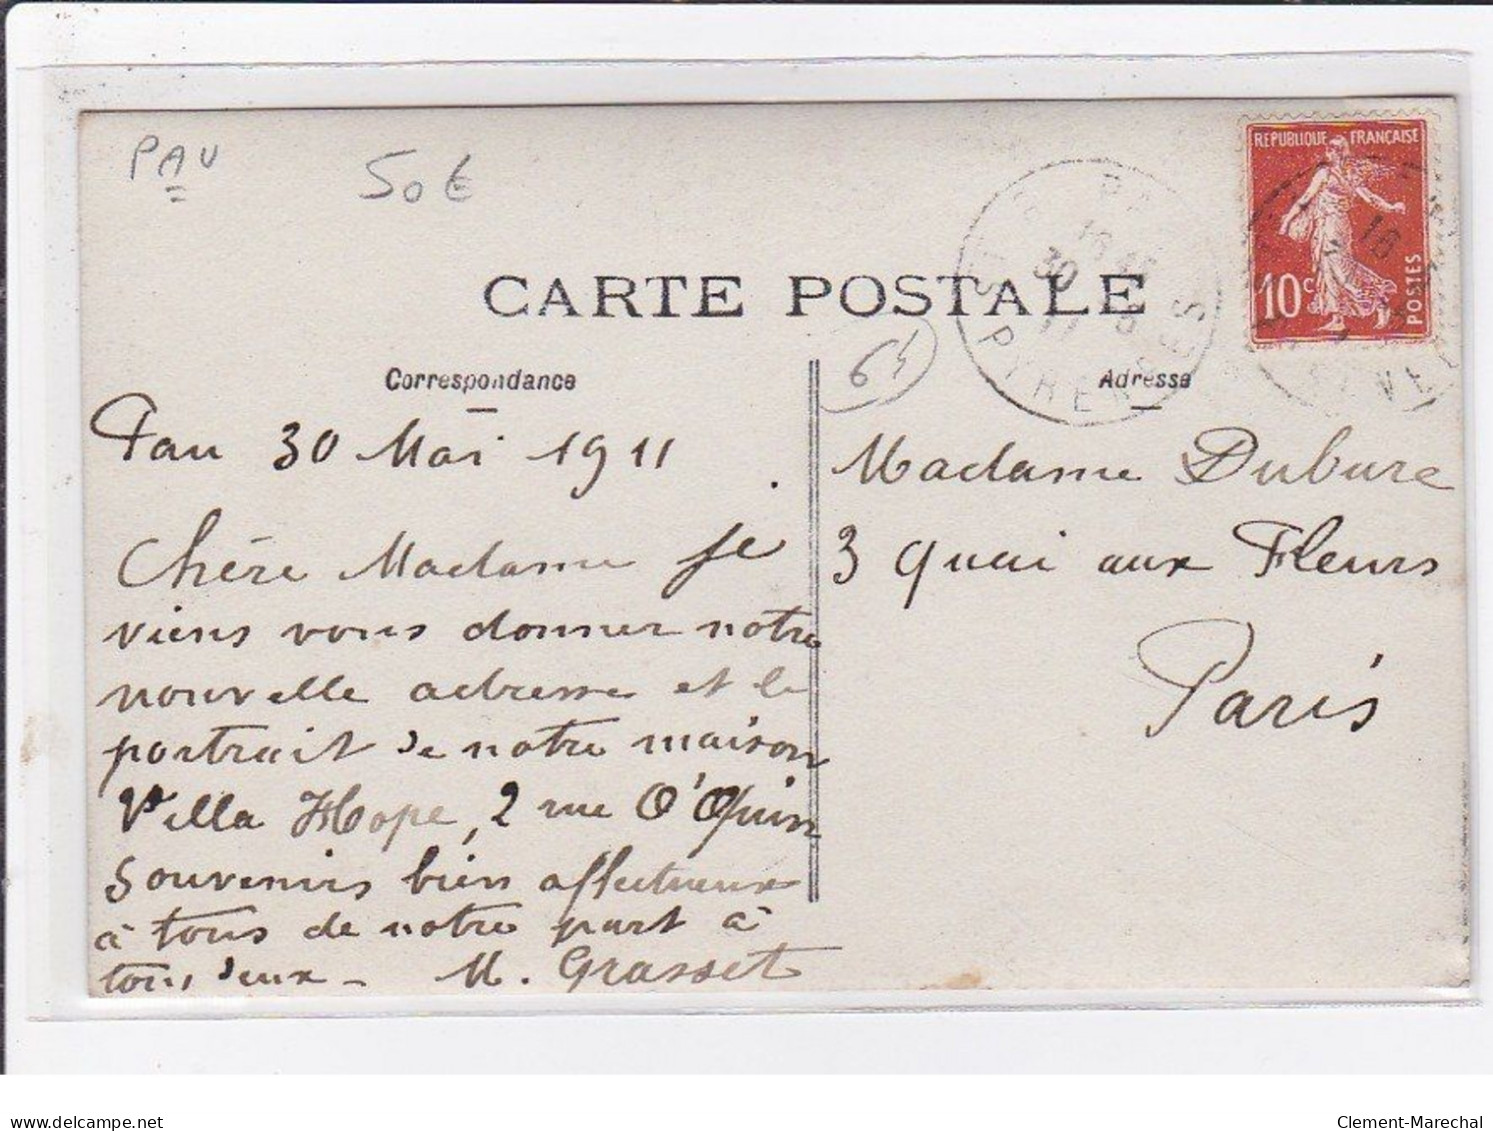 PAU
50€
REPUBLIQUE FRANÇAISE
10c
POSTES
CARTE POSTALE
64
Correspondance
Adresse
Pau 30 Mai 1911
Chère Madame je
viens vous donner notre
nouvelle adresse et le
portrait de notre maison
Villa Hope, 2 rue O'Quin
Souvenirs bien affectueux
à tous de notre part à
tous deux - M. Grasset
Madame Dubure
3 quai aux Fleurs
Paris
Clement-Marechal
delcampe.net